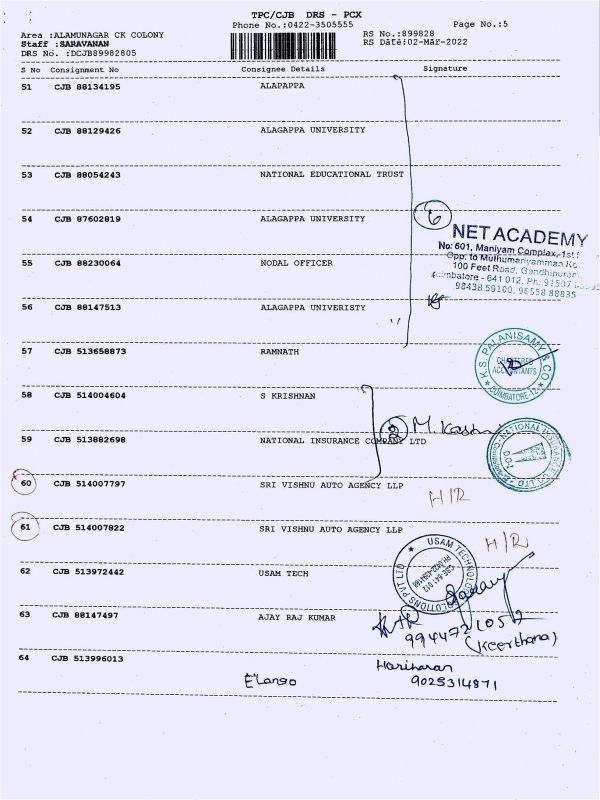 TPC/CJB DRS - PCX
Phone No.:0422-3505555
Page No.:5
Area :ALAMUNAGAR CK COLONY
RS No.:899828
Staff :SARAVANAN
RS Date:02-Mar-2022
DRS No. :DCJB89982805
S No Consignment No Consignee Details Signature
51 CJB 88134195 ALAPAPPA
52 CJB 88129426 ALAGAPPA UNIVERSITY
53 CJB 88054243 NATIONAL EDUCATIONAL TRUST
54 CJB 87602819 ALAGAPPA UNIVERSITY
6
NET ACADEMY
No: 601, Maniyam Complex, 1st
Opp. to Muthumariyamman
100 Feet Road, Gandhipuram,
Coimbatore - 641 012. Ph: 91507
98438 59100, 96558 88835
55 CJB 88230064 NODAL OFFICER
56 CJB 88147513 ALAGAPPA UNIVERISTY
57 CJB 513658873 RAMNATH
K.S. PALANISAMY & CO
CHARTERED
ACCOUNTANTS
COIMBATORE-12
58 CJB 514004604 S KRISHNAN
2 M. Kasha
59 CJB 513882698 NATIONAL INSURANCE COMPANY LTD
NATIONAL INSURANCE
60 CJB 514007797 SRI VISHNU AUTO AGENCY LLP
H/R
61 CJB 514007822 SRI VISHNU AUTO AGENCY LLP
H/R
62 CJB 513972442 USAM TECH
USAM TECHNOLOGY SOLUTIONS PVT LTD
CBE-641 012
63 CJB 88147497 AJAY RAJ KUMAR
9944721052
(Keerthana)
64 CJB 513996013
Elango
Hariharan
9025314871